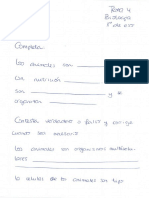 Tema 4
Biología
1º de ESO
Completa
Los animales son
su nutrición
son y se
organizan
Contesta verdadero o falso y corrige
cuando sea necesario
Los animales son organismos multicelu-
lares
la célula de los animales es tipo